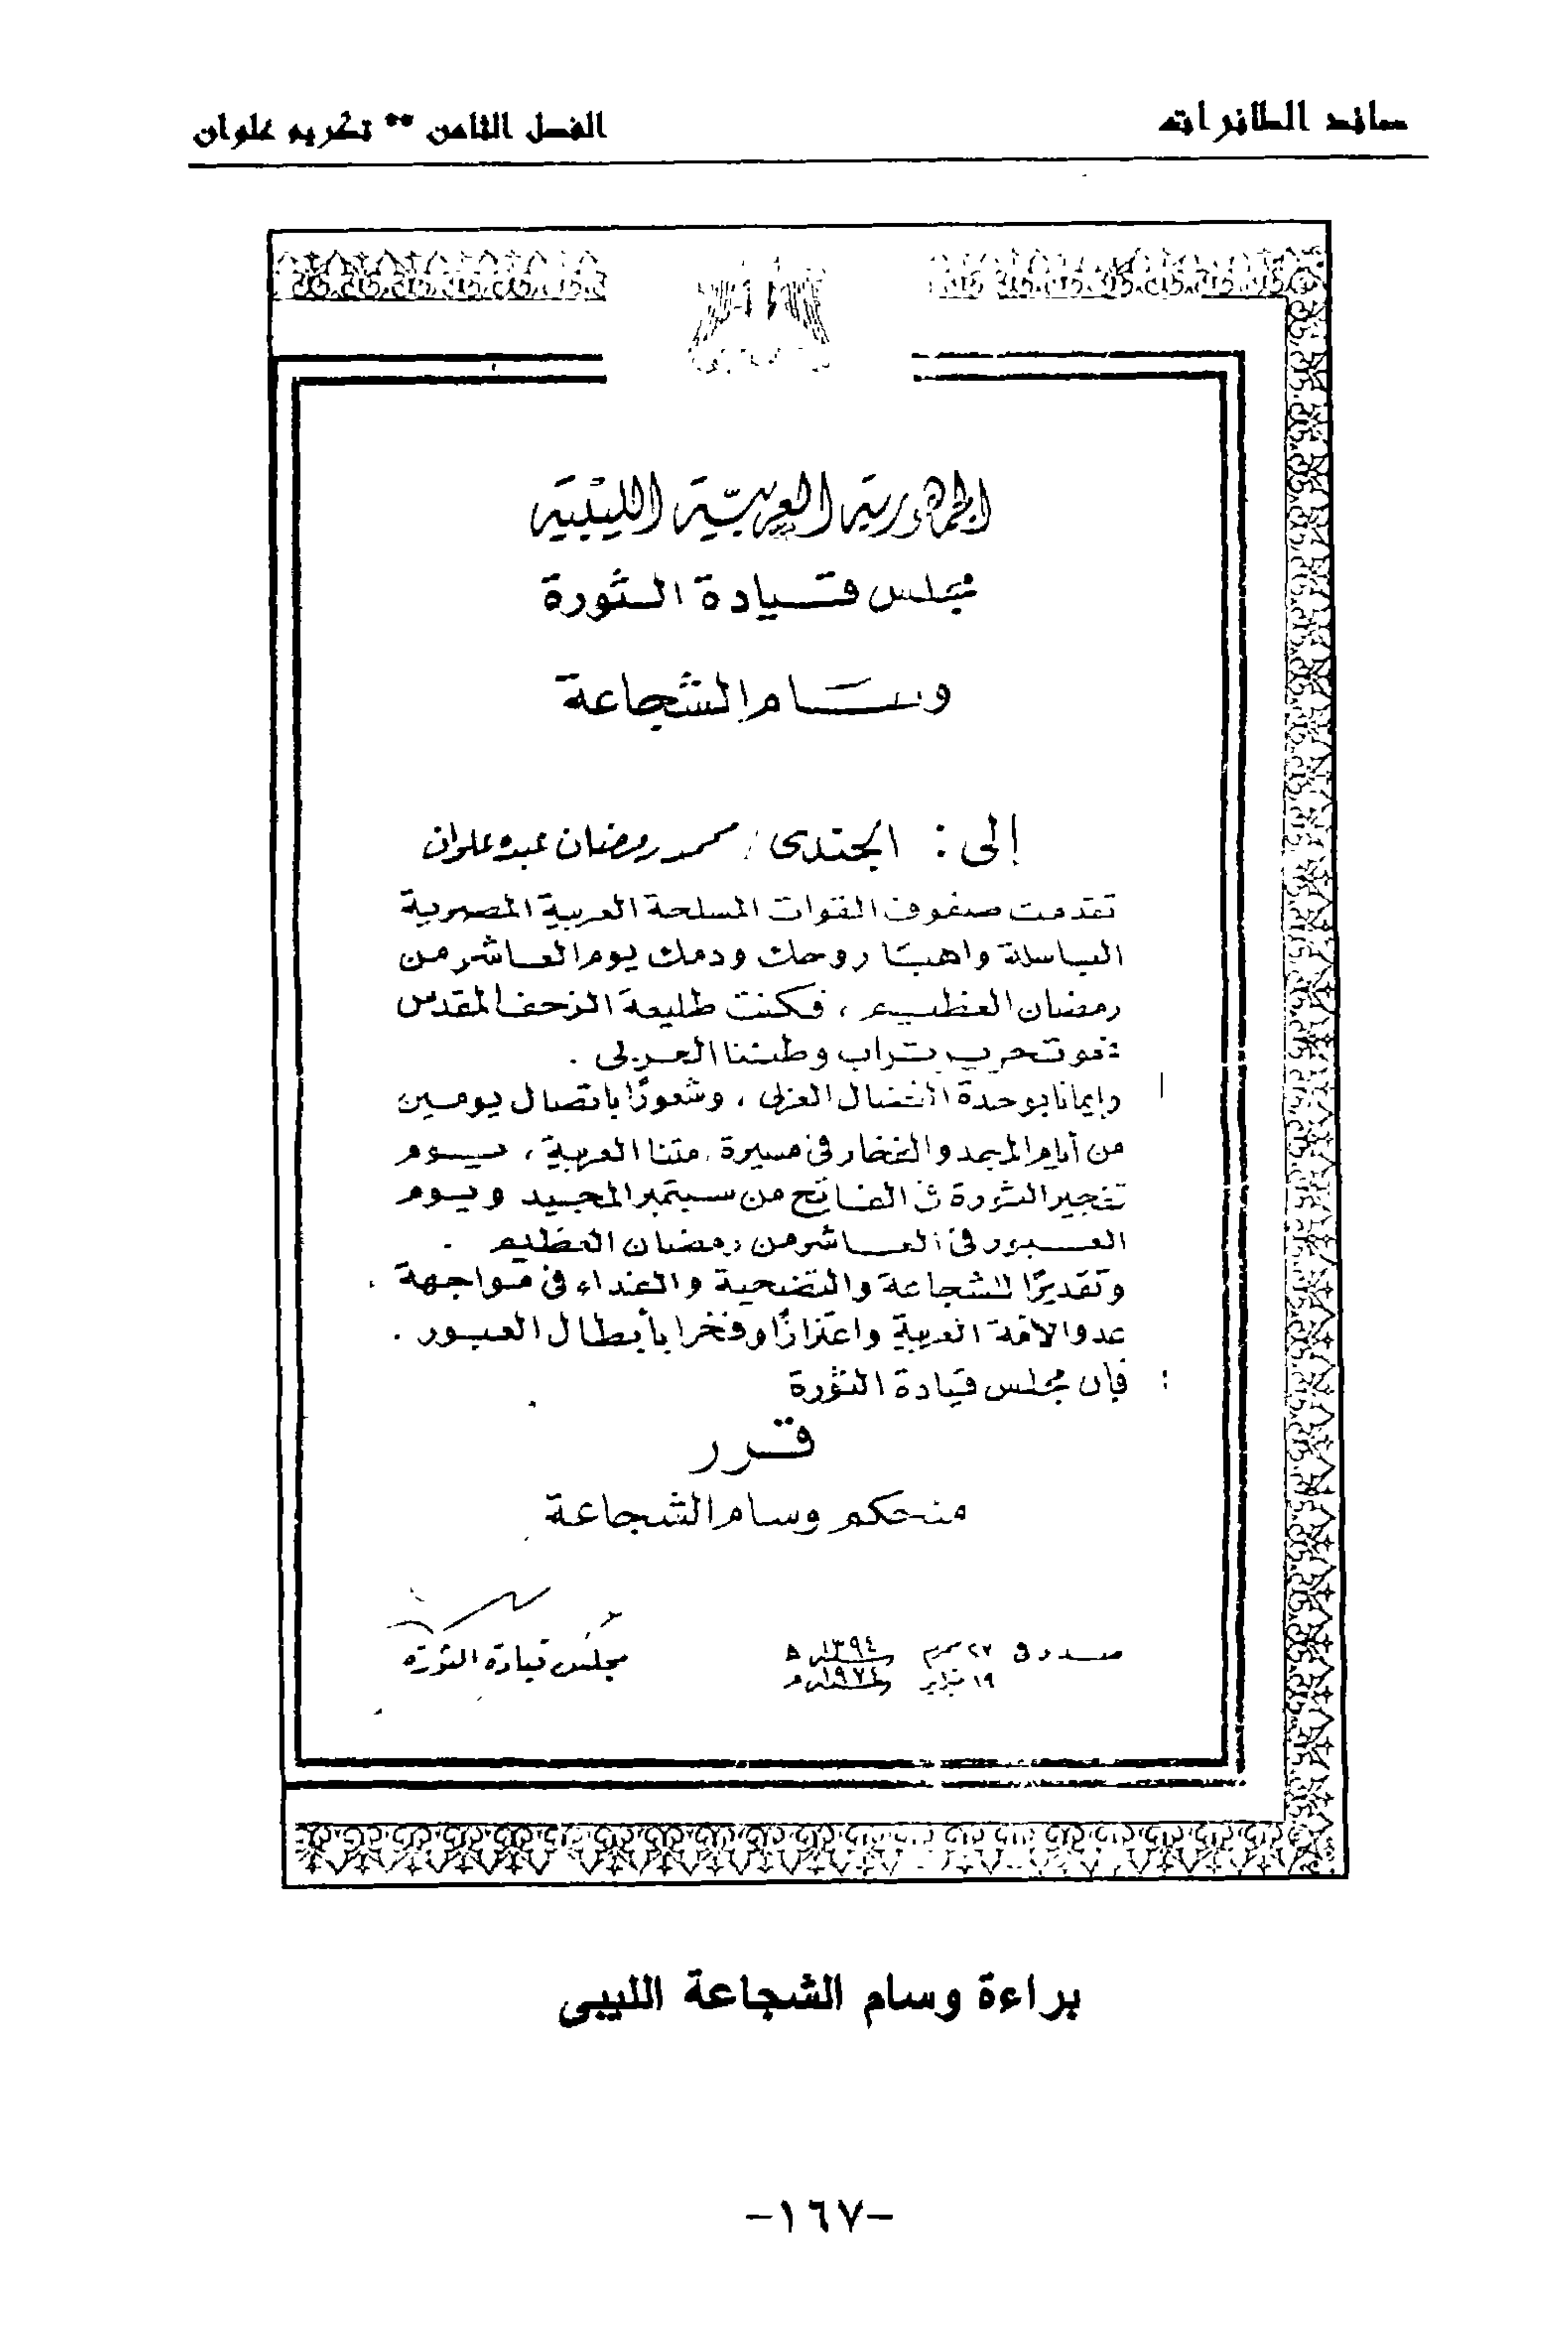 صائد الطائرات
الفصل الثامن ** تكريم علوان
الجمهورية العربية الليبية
مجلس قيادة الثورة
وسام الشجاعة
إلى : الجندى / محمد رمضان عبده علوان
تقدمت صفوف القوات المسلحة العربية المصرية
الباسلة واهبًا روحك ودمك يوم العاشر من
رمضان العظيم ، فكنت طليعة الزحف المقدس
نحو تحرير تراب وطننا العربى .
وإيمانا بوحدة النضال العربى ، وشعورًا باتصال يومين
من أيام المجد والفخار فى مسيرة أمتنا العربية ، يوم
تفجير الثورة فى الفاتح من سبتمبر المجيد ويوم
العبور فى العاشر من رمضان العظيم .
وتقديرًا للشجاعة والتضحية والفداء فى مواجهة
عدو الأمة العربية واعتزازًا وفخرا بأبطال العبور .
فإن مجلس قيادة الثورة
قرر
منحكم وسام الشجاعة
صدر فى ٢٧ محرم سنة ١٣٩٤ هـ
١٩ فبراير سنة ١٩٧٤ م
مجلس قيادة الثورة
براءة وسام الشجاعة الليبى
-١٦٧-